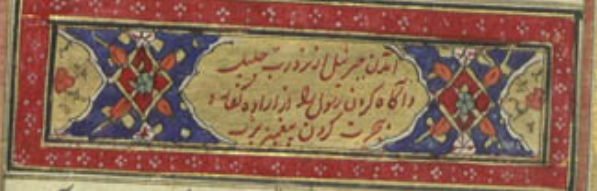 آمدن جبرئیل از نزد رب جلیل
و آگاه کردن رسول را از اراده کفار و
هجرت کردن پیغمبر